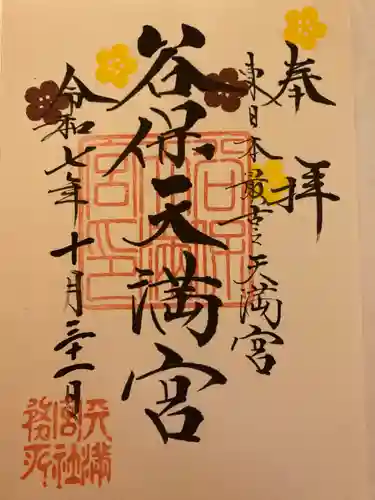 奉拝
東日本最古之天満宮
谷保天満宮
令和七年十月三十一日
天満
宮社
務所